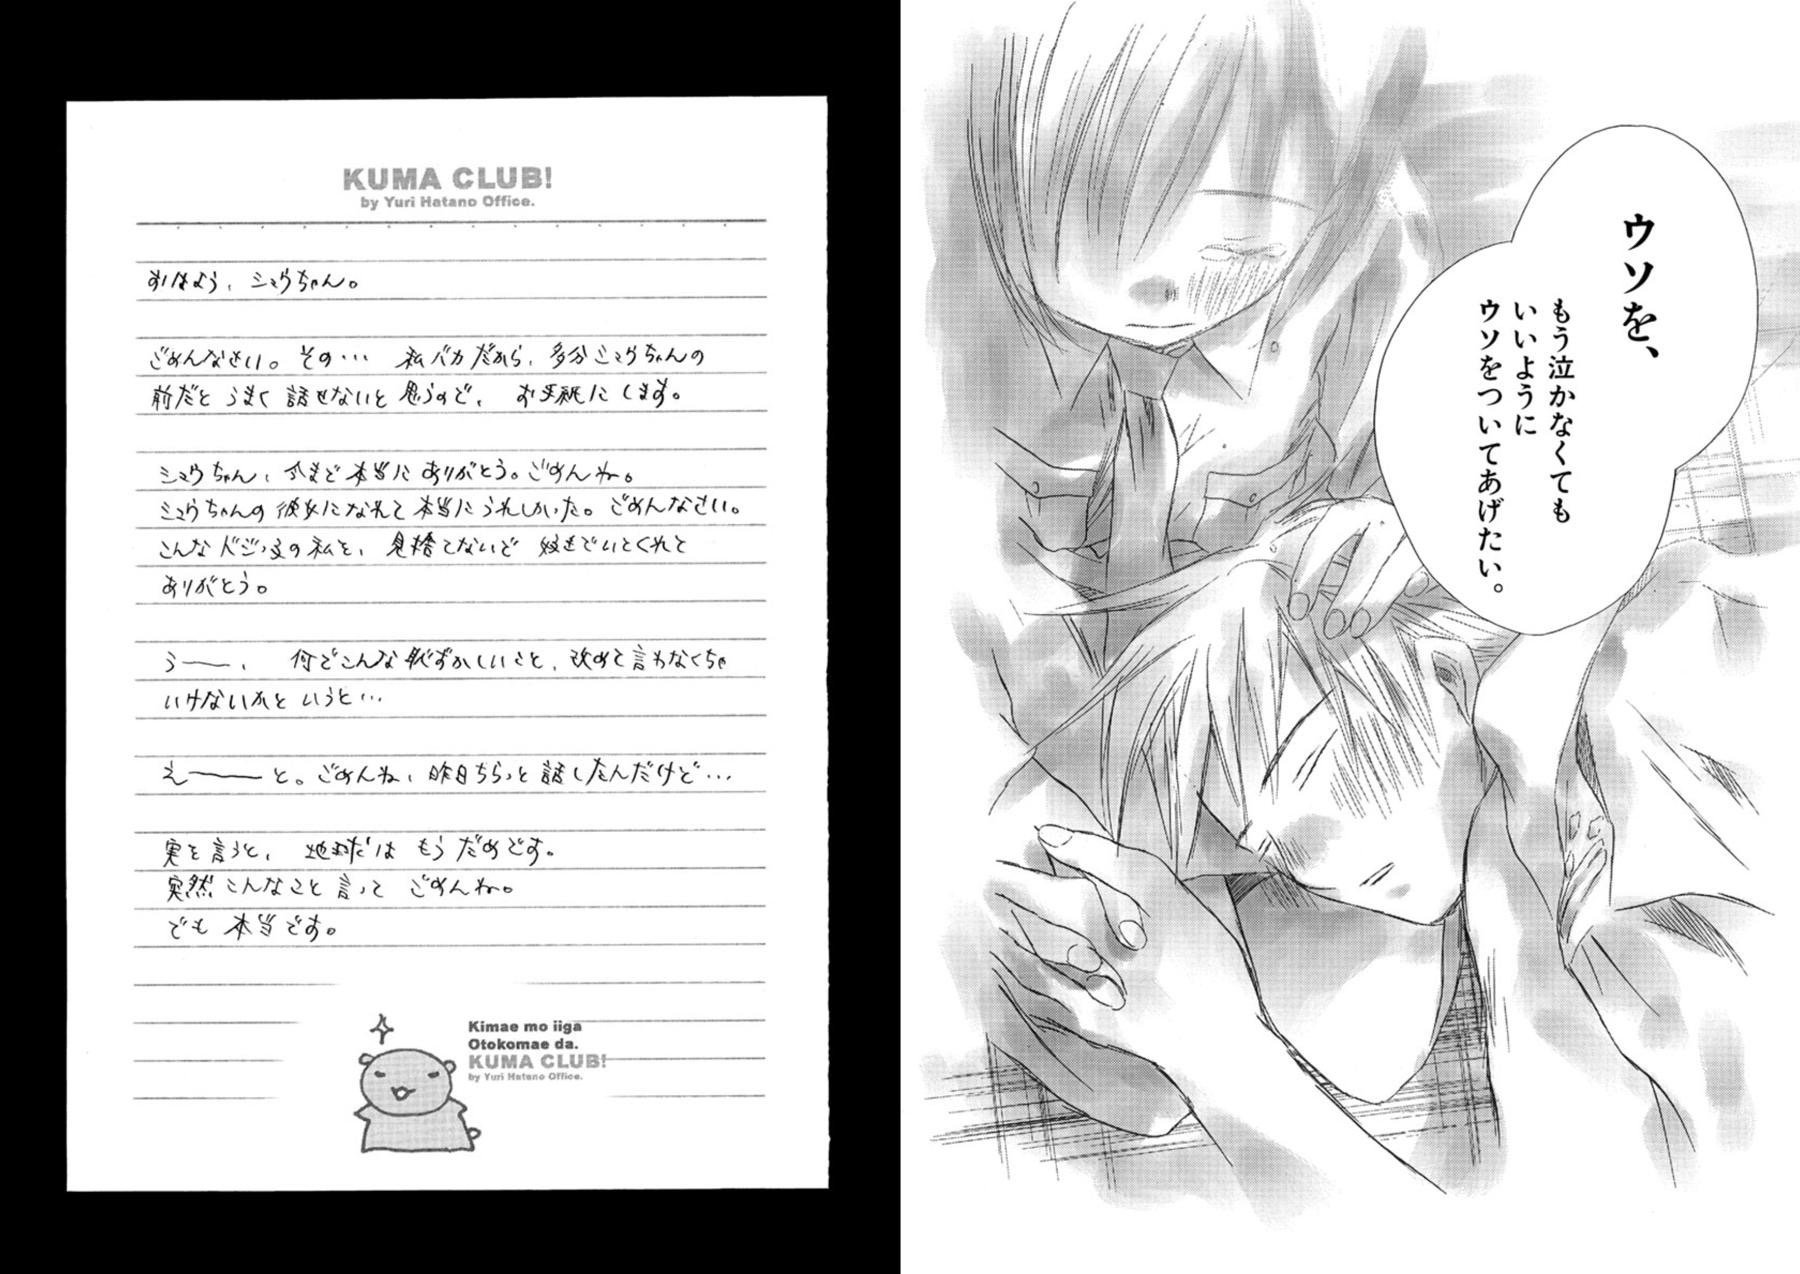 ウソを、
もう泣かなくても
いいように
ウソをついてあげたい。
KUMA CLUB!
by Yuri Hatano Office.
おはよう、シュウちゃん。
ごめんなさい。その… 私バカだから、多分シュウちゃんの
前だと うまく 話せないと 思うので、 お手紙に します。
シュウちゃん、今まで 本当に ありがとう。ごめんね。
シュウちゃんの 彼女になれて 本当に うれしかった。ごめんなさい。
こんな の私を、 見捨てないで 好きでいてくれて
ありがとう。
う——、 何でこんな 恥ずかしいこと、改めて 言わなくちゃ
いけないかと いうと…
え———と。ごめんね、昨日ちらっと 話したんだけど…
実を 言うと、 地球は もう だめです。
突然 こんなこと 言って ごめんね。
でも 本当です。
Kimae mo iiga
Otokomae da.
KUMA CLUB!
by Yuri Hatano Office.